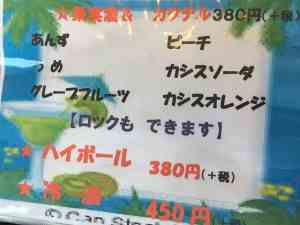 ★果実酒& カクテル380円(+税)
あんず ピーチ
うめ カシスソーダ
グレープフルーツ カシスオレンジ
【ロックも できます】
★ ハイボール 380円(+税)
★ 冷 酒 450円
© Can Stock